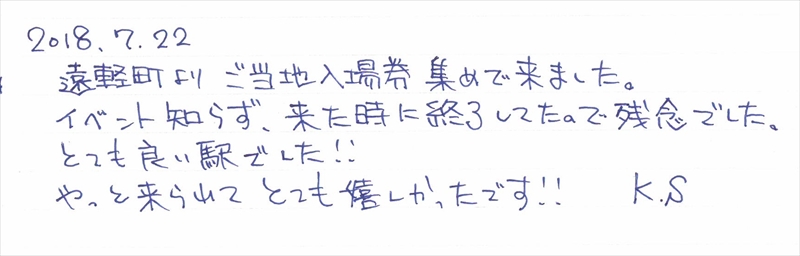 2018.7.22
遠軽町より ご当地入場券 集めで来ました。
イベント知らず、来た時に終了してたので残念でした。
とても良い駅でした!!
やっと来られて とても嬉しかったです!! K.S